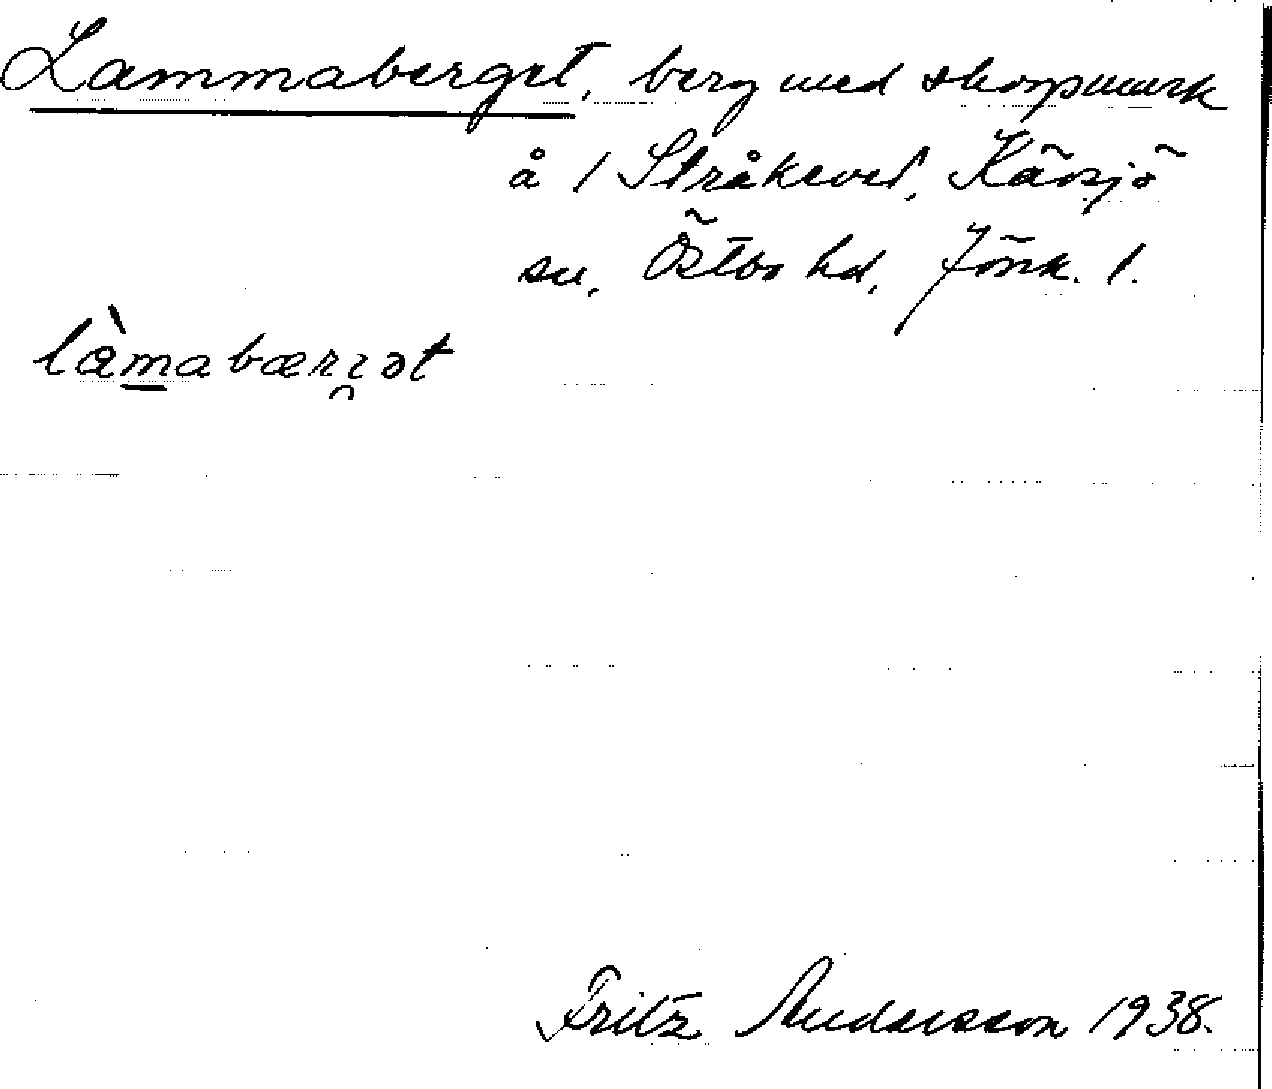 Lammaberget, berg med skogsmark
å 1 Stråkeved, Kävsjö
sn, Östbo hd, Jönk. l.
làmabærɪ̯ət
Fritz Andersson 1938.